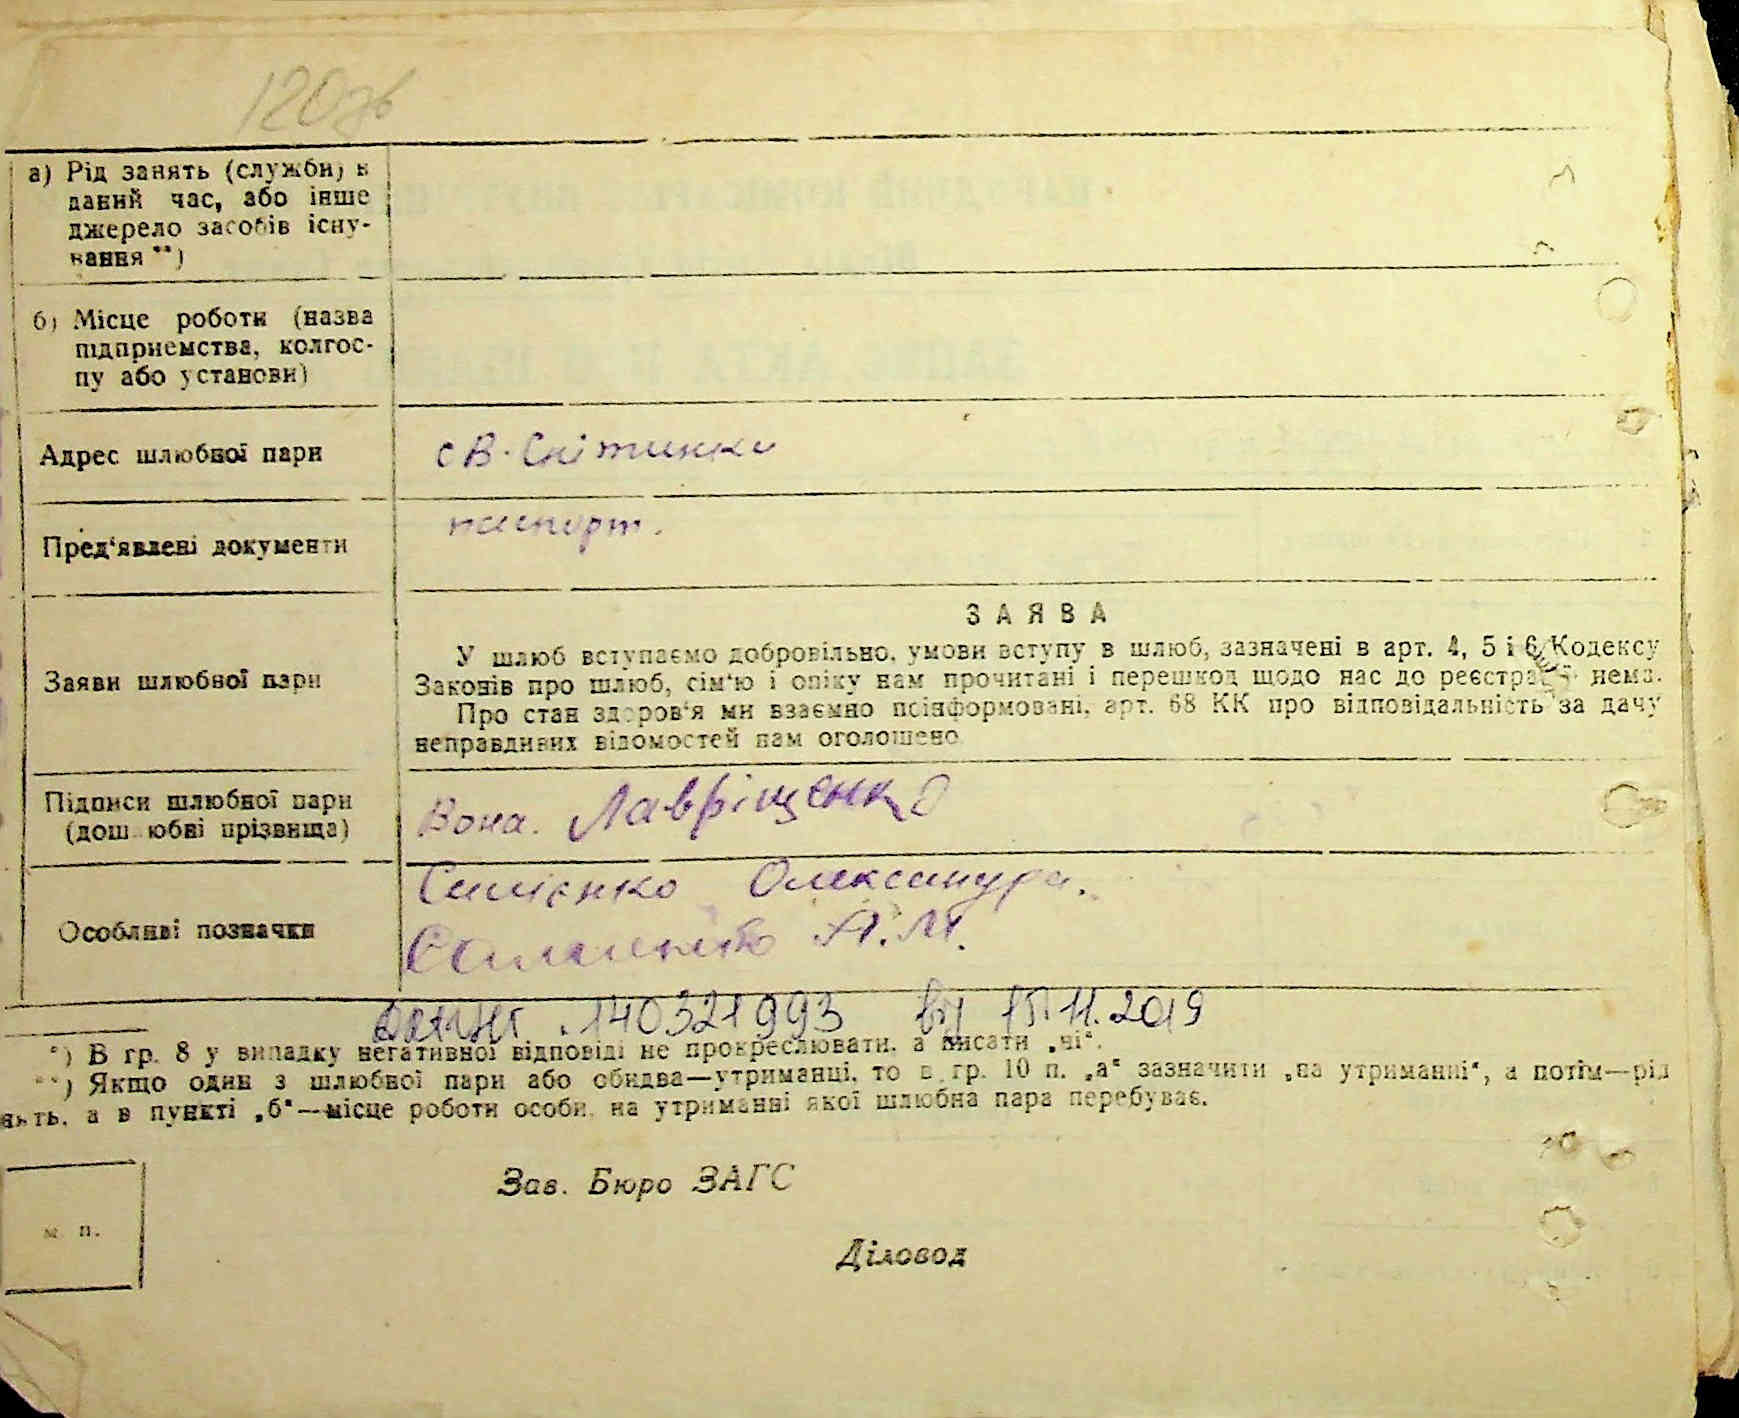 120зв
а) Рід занять (служби) в
даний час, або інше
джерело засобів існу-
вання **)
б) Місце роботи (назва
підприємства, колгос-
пу або установи)
Адрес шлюбної пари
с В. Снітинки
Пред'явлені документи
паспорт.
Заяви шлюбної пари
ЗАЯВА
У шлюб вступаємо добровільно, умови вступу в шлюб, зазначені в арт. 4, 5 і 6 Кодексу
Законів про шлюб, сім'ю і опіку нам прочитані і перешкод щодо нас до реєстрації нема.
Про стан здоров'я ми взаємно поінформовані, арт. 68 КК про відповідальність за дачу
неправдивих відомостей нам оголошено
Підписи шлюбної пари
(дошлюбні прізвища)
Вона. Лавріщенко
Особливі позначки
Олександра.
А.М.
140321993 від 15.11.2019
*) В гр. 8 у випадку негативної відповіді не прокреслювати, а писати „ні“.
**) Якщо один з шлюбної пари або обидва—утриманці, то в гр. 10 п. „а“ зазначити „на утриманні“, а потім—рід
нять, а в пункті „б“—місце роботи особи, на утриманні якої шлюбна пара перебуває.
м. п.
Зав. Бюро ЗАГС
Діловод